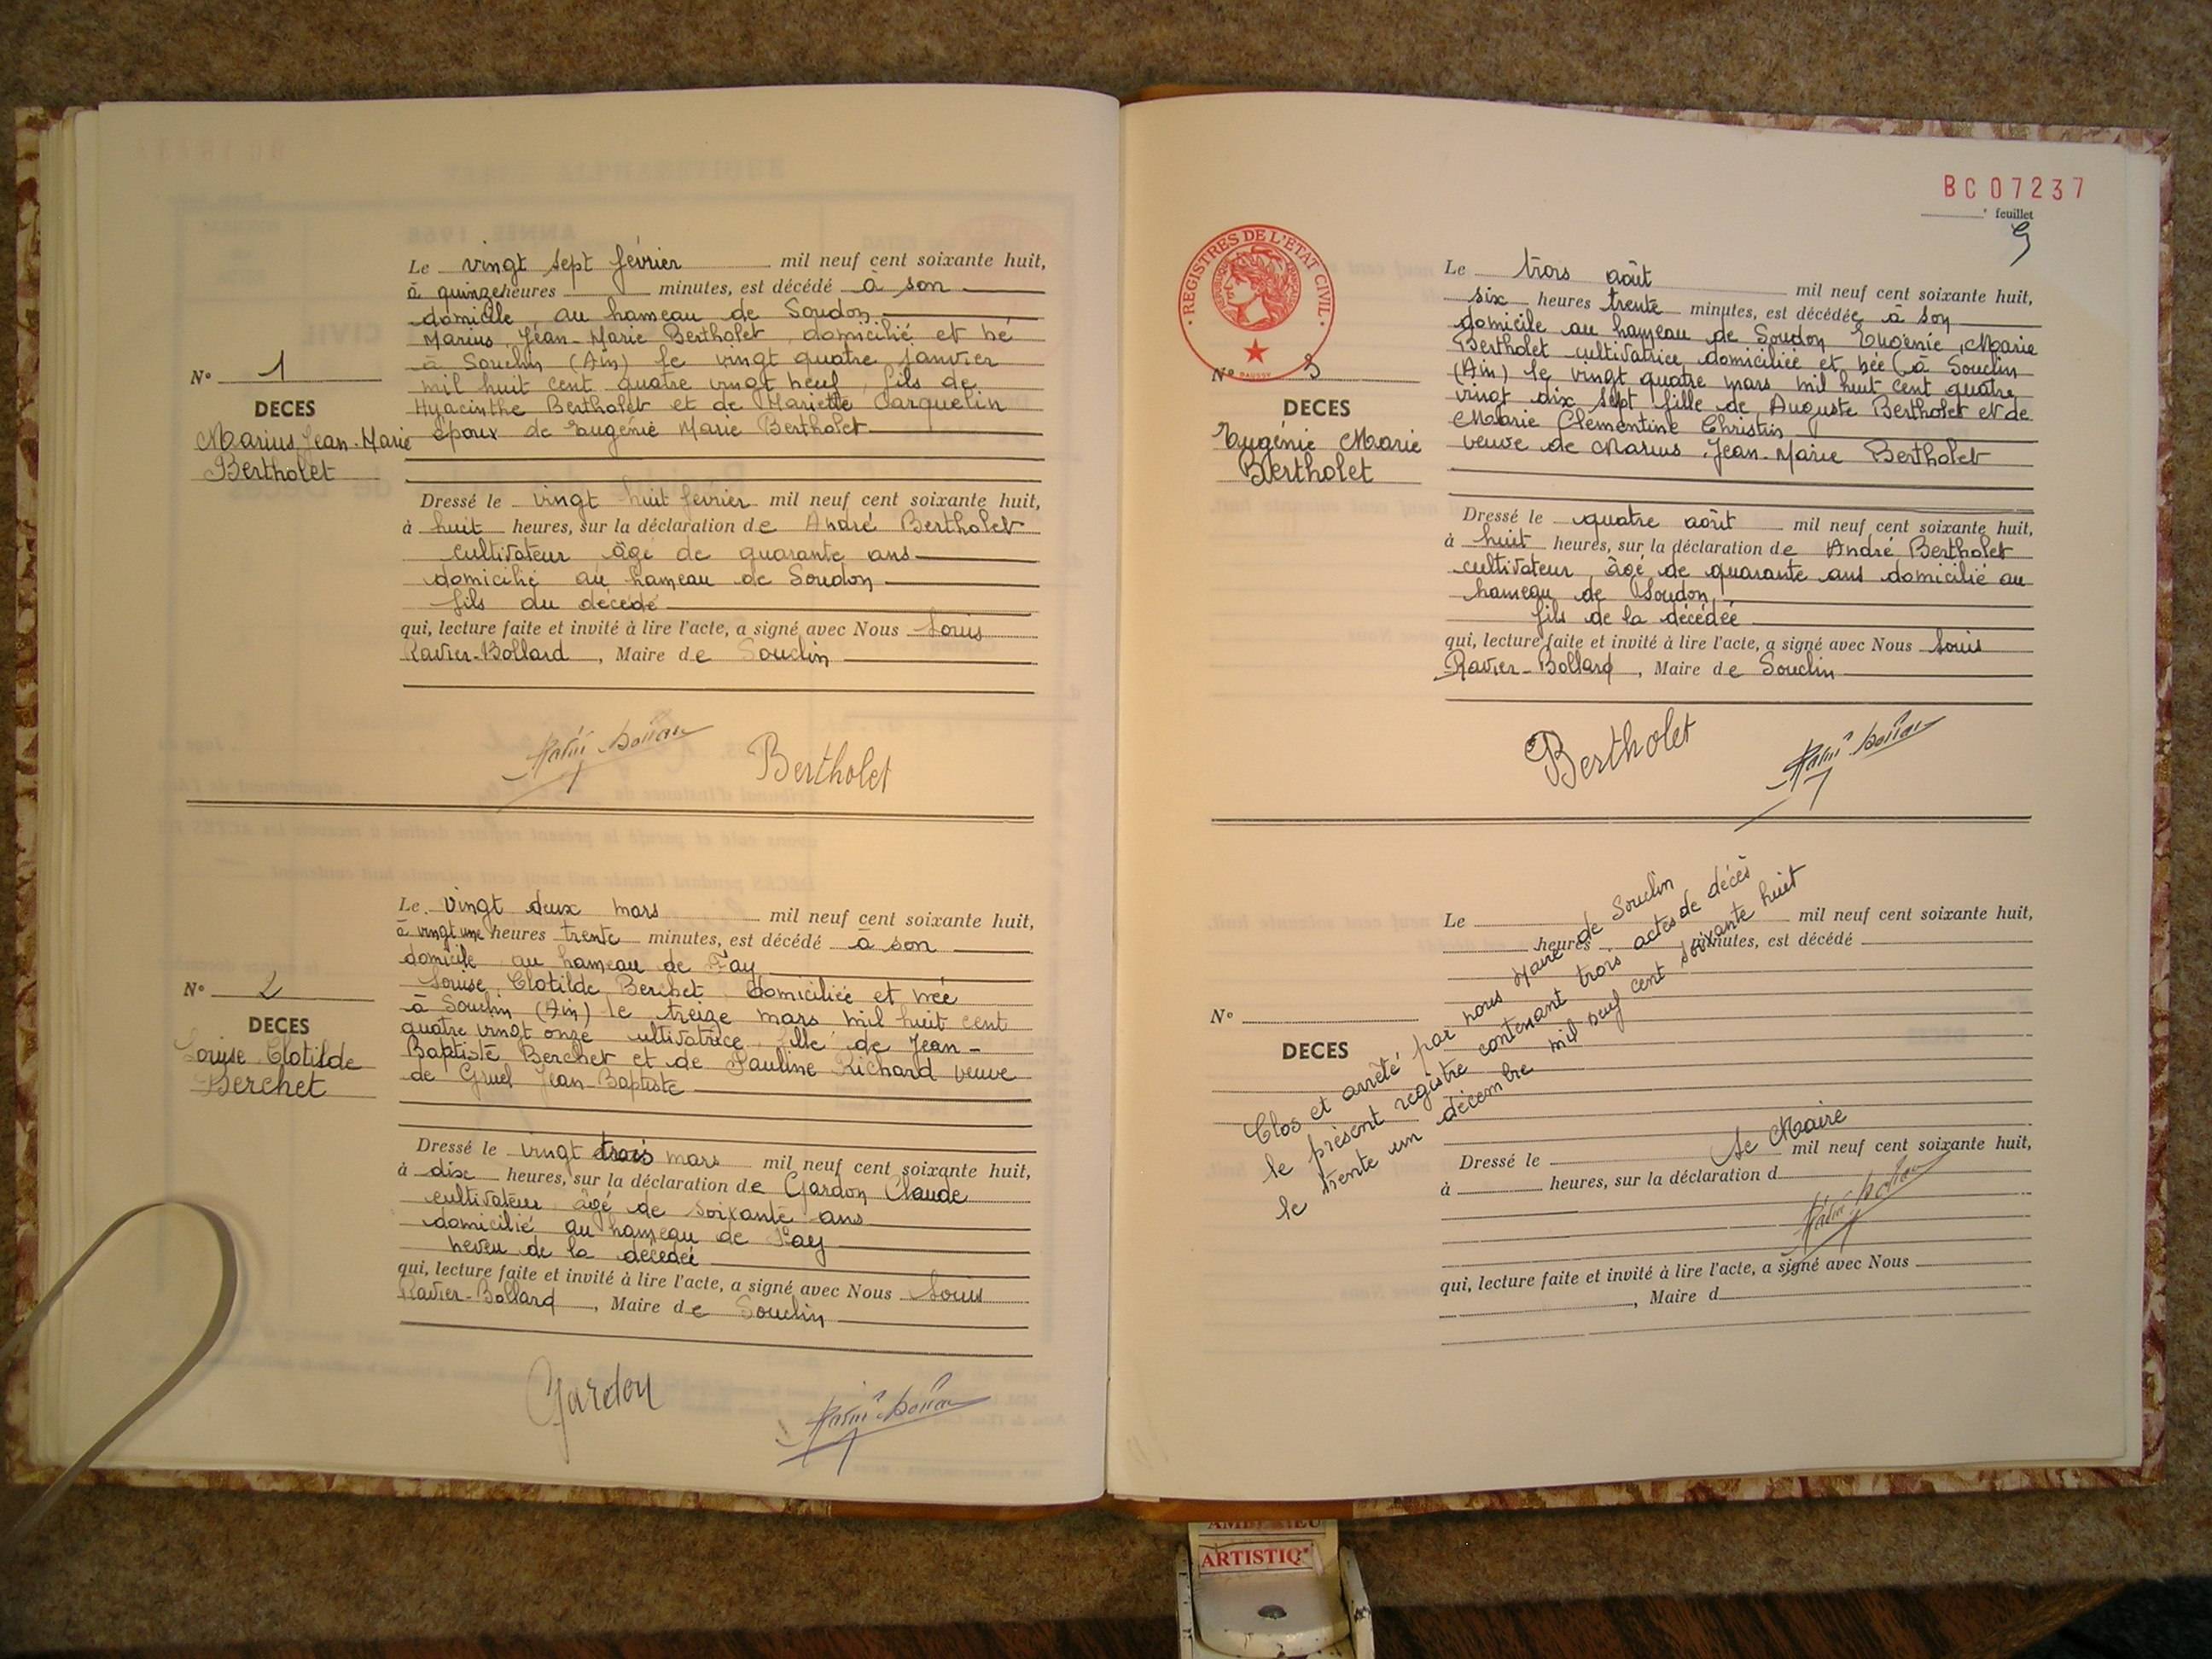 Le vingt sept février mil neuf cent soixante huit,
à quinze heures minutes, est décédé à son
domicile au hameau de Soudon
Marius, Jean-Marie Bertholet, domicilié et né
à Souclin (Ain) le vingt quatre janvier
mil huit cent quatre vingt neuf, fils de
Hyacinthe Bertholet et de Mariette Carquelin
époux de Eugénie Marie Bertholet
N° 1
DECES
Marius Jean-Marie
Bertholet
Dressé le vingt huit février mil neuf cent soixante huit,
à huit heures, sur la déclaration de André Bertholet
cultivateur âgé de quarante ans
domicilié au hameau de Soudon
fils du décédé
qui, lecture faite et invité à lire l'acte, a signé avec Nous Louis
Ravier-Bollard, Maire de Souclin
Bertholet
Le vingt deux mars mil neuf cent soixante huit,
à vingt une heures trente minutes, est décédé à son
domicile au hameau de Fay
Louise, Clotilde Berchet, domiciliée et née
à Souclin (Ain) le treize mars mil huit cent
quatre vingt onze cultivatrice, fille de Jean-
Baptiste Berchet et de Pauline Richard veuve
de Gruel Jean-Baptiste
N° 2
DECES
Louise Clotilde
Berchet
Dressé le vingt trois mars mil neuf cent soixante huit,
à dix heures, sur la déclaration de Gardon Claude
cultivateur, âgé de soixante ans
domicilié au hameau de Fay
neveu de la décédée
qui, lecture faite et invité à lire l'acte, a signé avec Nous Louis
Ravier-Bollard, Maire de Souclin
Gardon
BC07237
e feuillet
9
REGISTRES DE L'ETAT CIVIL
Le trois août mil neuf cent soixante huit,
six heures trente minutes, est décédée à son
domicile au hameau de Soudon Eugénie, Marie
Bertholet cultivatrice domiciliée et née à Souclin
(Ain) le vingt quatre mars mil huit cent quatre
vingt dix sept fille de Auguste Bertholet et de
Marie Clementine Christin
veuve de Marius, Jean-Marie Bertholet
N° 3
DECES
Eugénie Marie
Bertholet
Dressé le quatre août mil neuf cent soixante huit,
à huit heures, sur la déclaration de André Bertholet
cultivateur, âgé de quarante ans domicilié au
hameau de Soudon,
fils de la décédée
qui, lecture faite et invité à lire l'acte, a signé avec Nous Louis
Ravier-Bollard, Maire de Souclin
Bertholet
Le mil neuf cent soixante huit,
heures minutes, est décédé
N°
DECES
Clos et arrêté par nous Maire de Souclin
le présent registre contenant trois actes de décès
le trente un décembre mil neuf cent soixante huit
Le Maire
Dressé le mil neuf cent soixante huit,
à heures, sur la déclaration d
qui, lecture faite et invité à lire l'acte, a signé avec Nous
, Maire d
ARTISTIQ